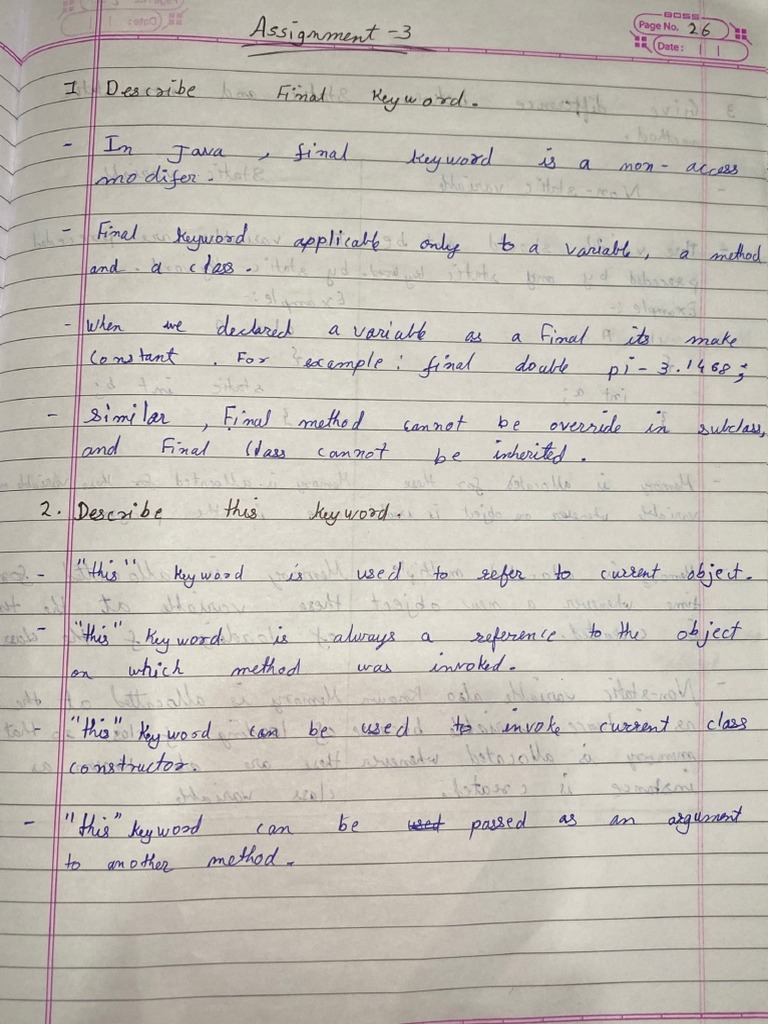 Assignment -3
BOSS
Page No. 26
Date:
1 Describe Final Keyword.
- In Java, final keyword is a non-access
modifer.
- Final keyword applicable only to a variable, a method
and a class.
- When we declared a variable as a Final its make
constant. For example: final double pi - 3.1468;
- Similar, Final method cannot be override in subclass,
and Final Class cannot be inherited.
2. Describe this keyword.
- "this" keyword is used to refer to current object.
- "this" keyword is always a reference to the object
on which method was invoked.
- "this" keyword can be used to invoke current class
constructor.
- "this" keyword can be used passed as an argument
to another method.